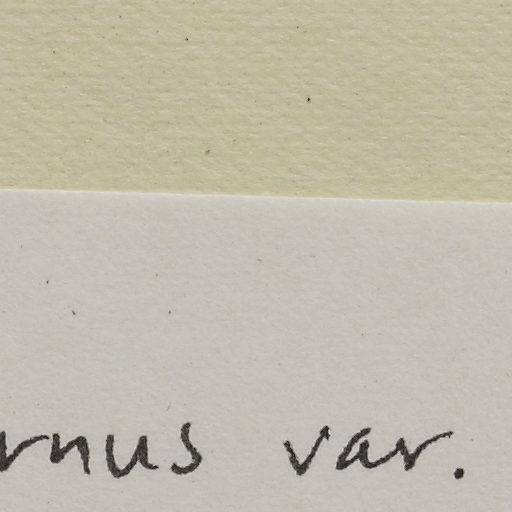 rnus var.